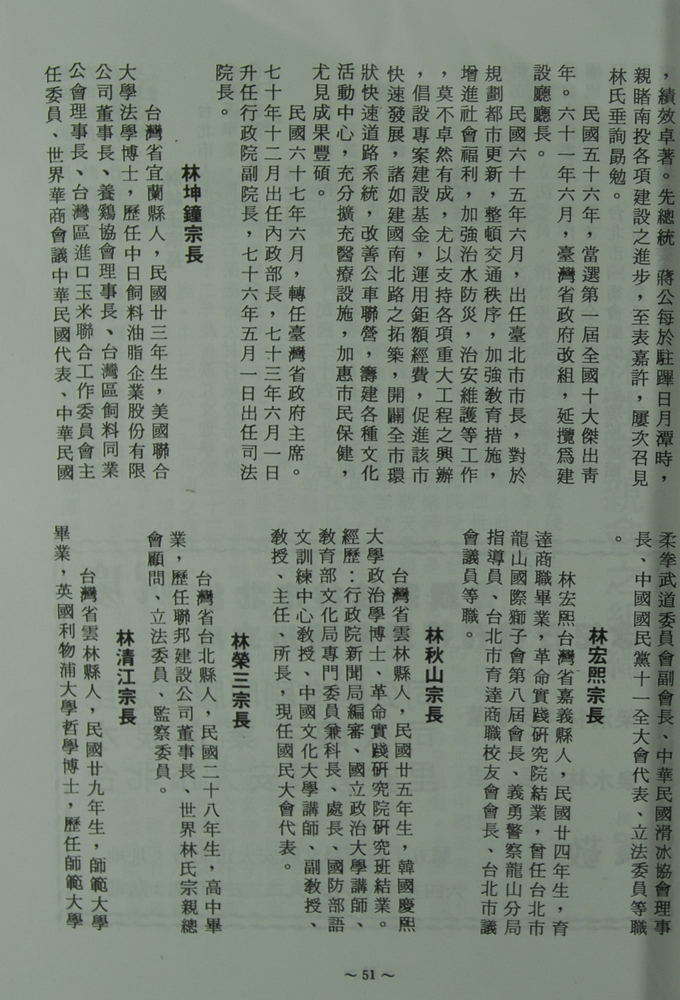 ，績效卓著。先總統　蔣公每於駐蹕日月潭時，
親睹南投各項建設之進步，至表嘉許，屢次召見
林氏垂詢勗勉。
民國五十六年，當選第一屆全國十大傑出青
年。六十一年六月，臺灣省政府改組，延攬爲建
設廳廳長。
民國六十五年六月，出任臺北市市長，對於
規劃都市更新，整頓交通秩序，加強教育措施，
增進社會福利，加強治水防災，治安維護等工作
，莫不卓然有成，尤以支持各項重大工程之興辦
，倡設專案建設基金，運用鉅額經費，促進該市
快速發展，諸如建國南北路之拓築，開闢全市環
狀快速道路系統，改善公車聯營，籌建各種文化
活動中心，充分擴充醫療設施，加惠市民保健，
尤見成果豐碩。
民國六十七年六月，轉任臺灣省政府主席。
七十年十二月出任內政部長，七十三年六月一日
升任行政院副院長，七十六年五月一日出任司法
院長。
林坤鐘宗長
台灣省宜蘭縣人，民國廿三年生，美國聯合
大學法學博士，歷任中日飼料油脂企業股份有限
公司董事長、養鷄協會理事長、台灣區飼料同業
公會理事長、台灣區進口玉米聯合工作委員會主
任委員、世界華商會議中華民國代表、中華民國
柔拳武道委員會副會長、中華民國滑冰協會理事
長、中國國民黨十一全大會代表、立法委員等職
。
林宏熙宗長
林宏熙台灣省嘉義縣人，民國廿四年生，育
達商職畢業，革命實踐研究院結業，曾任台北市
龍山國際獅子會第八屆會長、義勇警察龍山分局
指導員、台北市育達商職校友會會長、台北市議
會議員等職。
林秋山宗長
台灣省雲林縣人，民國廿五年生，韓國慶熙
大學政治學博士、革命實踐研究院研究班結業。
經歷：行政院新聞局編審、國立政治大學講師、
教育部文化局專門委員兼科長、處長、國防部語
文訓練中心教授、中國文化大學講師、副教授、
教授、主任、所長，現任國民大會代表。
林榮三宗長
台灣省台北縣人，民國二十八年生，高中畢
業，歷任聯邦建設公司董事長、世界林氏宗親總
會顧問、立法委員、監察委員。
林清江宗長
台灣省雲林縣人，民國廿九年生，師範大學
畢業，英國利物浦大學哲學博士，歷任師範大學
～51～